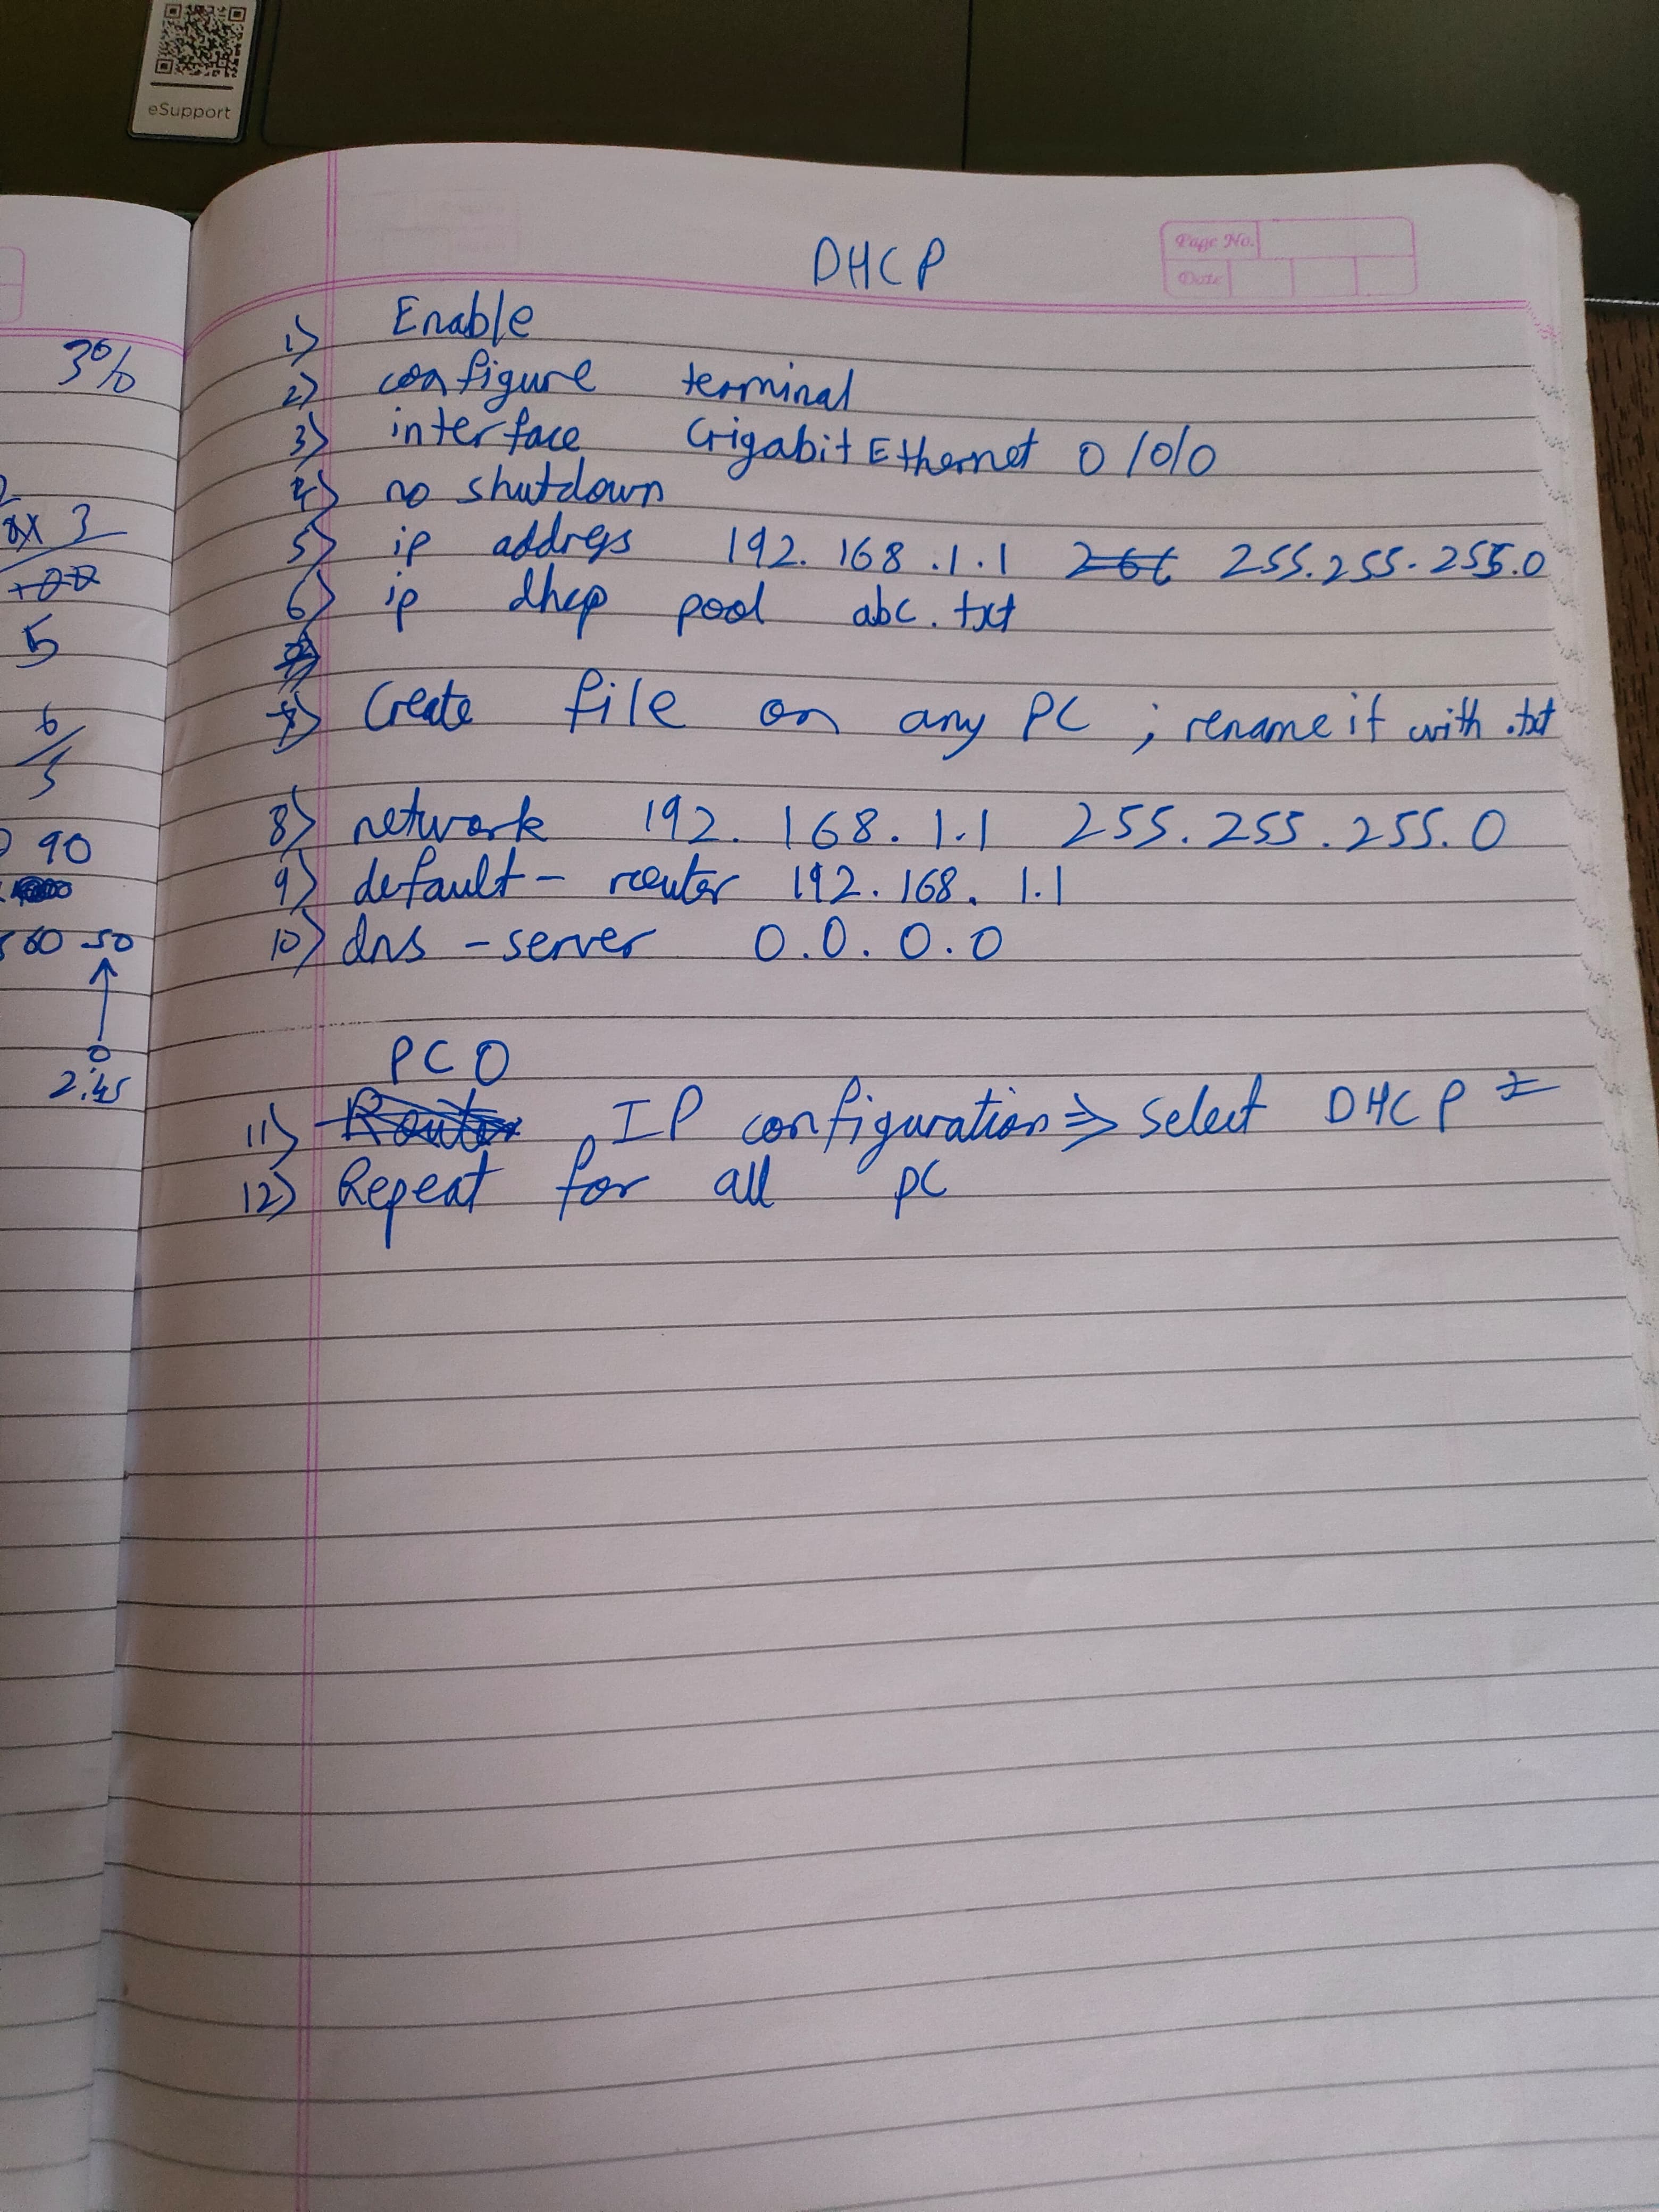 eSupport
Page No.
Date
DHCP
1) Enable
2) configure terminal
3) interface GigabitEthernet 0/0/0
4) no shutdown
5) ip address 192.168.1.1 255.255.255.0
6) ip dhcp pool abc.txt
7) Create file on any PC ; rename it with .txt
8) network 192.168.1.1 255.255.255.0
9) default-router 192.168.1.1
10) dns-server 0.0.0.0
PC0
11) IP configuration ⇒ select DHCP
12) Repeat for all PC
3%
5
6/5
90
60 50
2:45